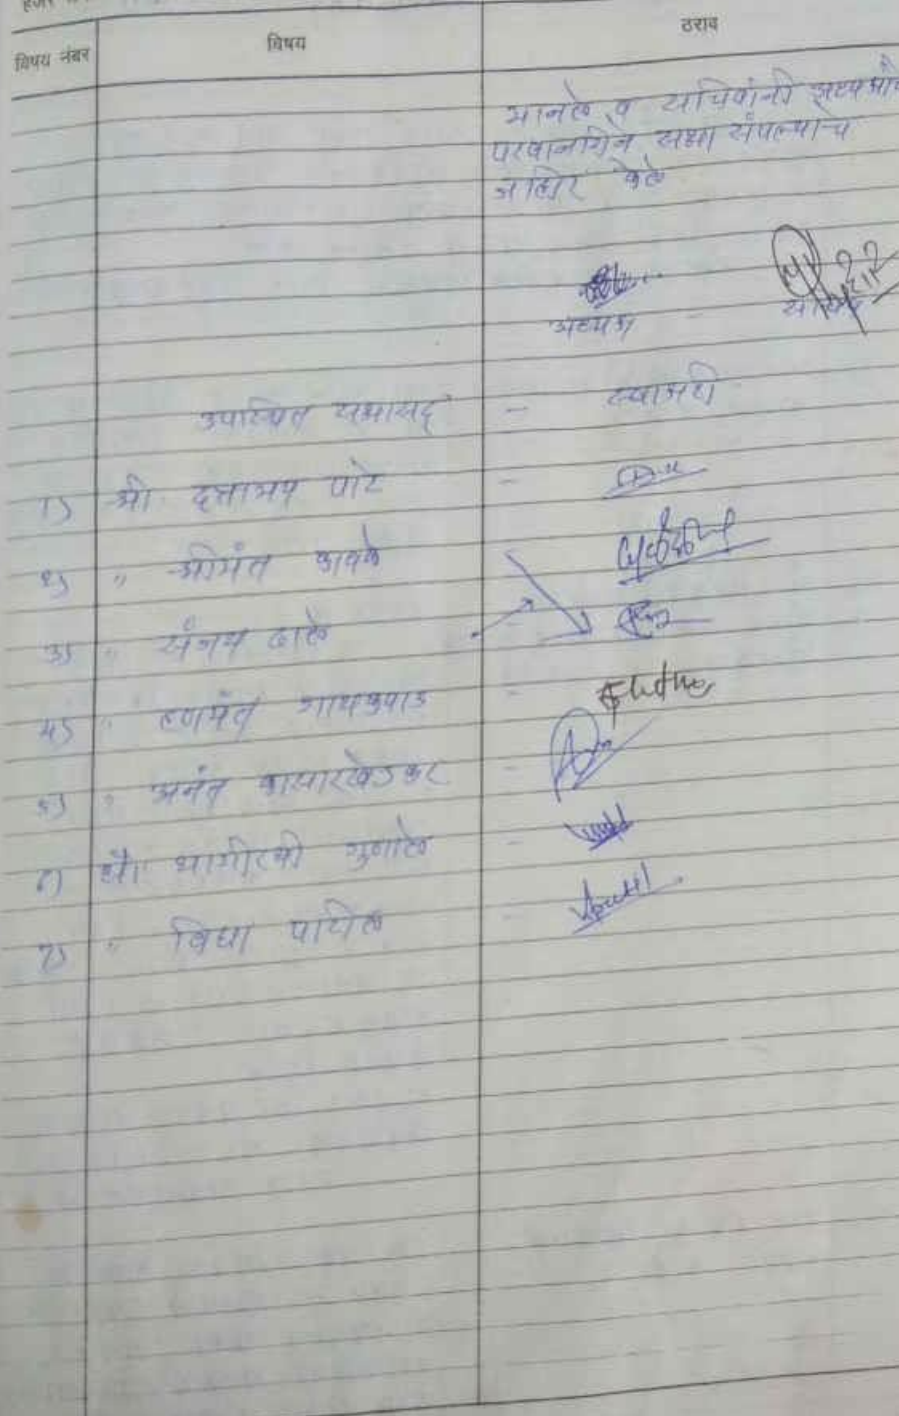 विषय नंबर विषय ठराव
मानले व सचिवांनी
परवानगीने सभा संपल्याचे
जाहिर केले
अध्यक्ष
उपस्थित सभासद - स्वाक्षरी
1) श्री दत्तात्रय पोटे -
2) " श्रीमंत काकडे
3) " संजय ढाले
4) " हणमंत गायकवाड -
5) " अनंत कासारखेडकर -
6) सौ भागीरथी गुणाले -
7) " विद्या पाटील -